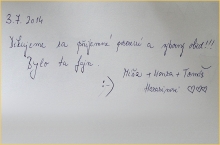 3.7.2014
Děkujeme za příjemné posezení a výborný oběd!!!
Bylo tu fajn.
Míša + Honza + Tomáš
:-)